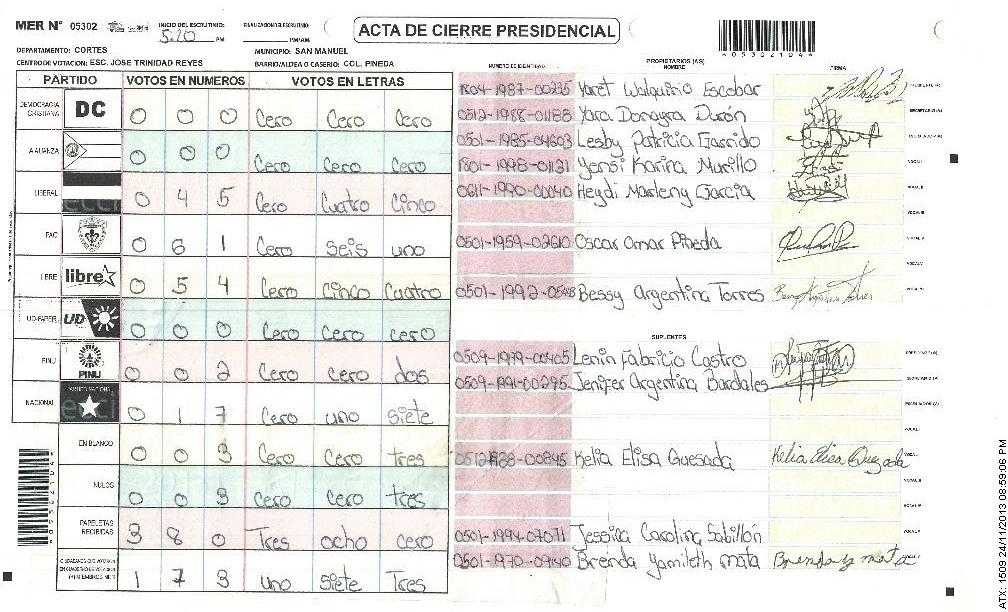 MER Nº 05302
INICIO DEL ESCRUTINIO: 5:20 PM
FINALIZACION DEL ESCRUTINIO: PM/AM
ACTA DE CIERRE PRESIDENCIAL
05302104
DEPARTAMENTO: CORTES
MUNICIPIO: SAN MANUEL
CENTRO DE VOTACION: ESC. JOSE TRINIDAD REYES
BARRIO/ALDEA O CASERIO: COL. PINEDA
PARTIDO VOTOS EN NUMEROS VOTOS EN LETRAS
DEMOCRACIA CRISTIANA DC 0 0 0 Cero Cero Cero
ALIANZA 0 0 0 Cero Cero Cero
LIBERAL 0 4 5 Cero Cuatro Cinco
PAC 0 6 1 Cero Seis uno
LIBRE libre 0 5 4 Cero Cinco Cuatro
UD-FAPER UD 0 0 0 Cero Cero cero
PINU PINU 0 0 2 Cero cero dos
NACIONAL 0 1 7 Cero uno siete
EN BLANCO 0 0 3 Cero Cero tres
NULOS 0 0 3 Cero Cero tres
PAPELETAS RECIBIDAS 3 8 0 Tres ocho cero
1 7 3 uno Siete Tres
NUMERO DE IDENTIDAD
PROPIETARIOS (AS)
NOMBRE
FIRMA
1804-1987-00235 Yaret Walquirio Escobar
0512-1988-01188 Yara Donayra Durón
0501-1985-04603 Lesby Patricia Garrido
1801-1998-01131 Yensi Karina Murillo
0611-1990-00040 Heydi Marleny Garcia
0501-1959-02610 Oscar Omar Pineda
0501-1992-05418 Bessy Argentina Torres
SUPLENTES
0509-1979-00405 Lenin Fabricio Castro
0509-1991-00295 Jenifer Argentina Bardales
00845 Kelia Elisa Quesada Kelia Elisa Quezada
0501-1994-07071 Jessica Carolina Sabillón
0501-1970-09140 Brenda Yamileth mata Brenda y mata
ATX: 1509 24/11/2013 08:59:06 PM